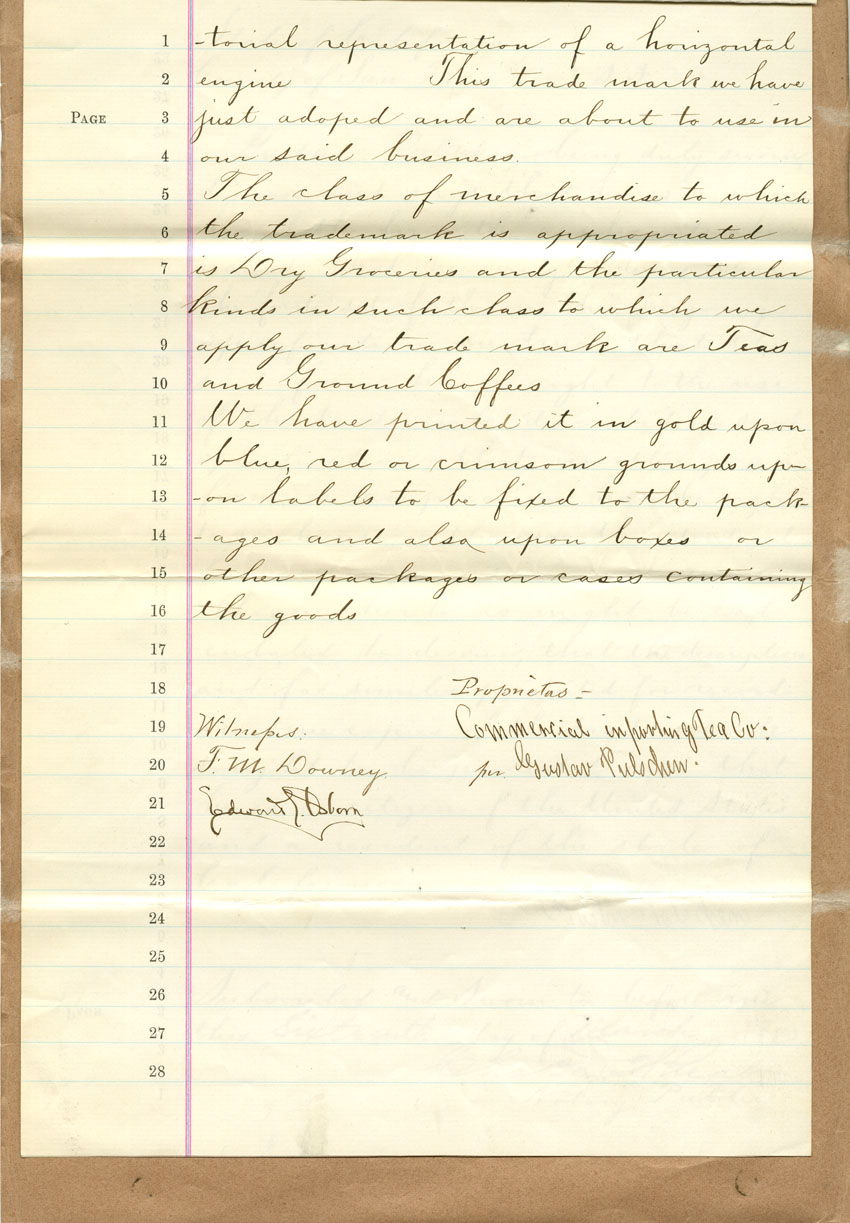 1 -torial representation of a horizontal
2 engine This trade mark we have
PAGE 3 just adoped and are about to use in
4 our said business.
5 The class of merchandise to which
6 the trademark is appropriated
7 is Dry Groceries and the particular
8 kinds in such class to which we
9 apply our trade mark are Teas
10 and Ground Coffees
11 We have printed it in gold upon
12 blue, red or crimsom grounds up-
13 -on labels to be fixed to the pack-
14 -ages and also upon boxes or
15 other packages or cases containing
16 the goods
17
18 Proprietas -
19 Witnesses: Commercial importing Tea Co:
20 T. M. Downey per Gustav
21 Edward Osborn
22
23
24
25
26
27
28